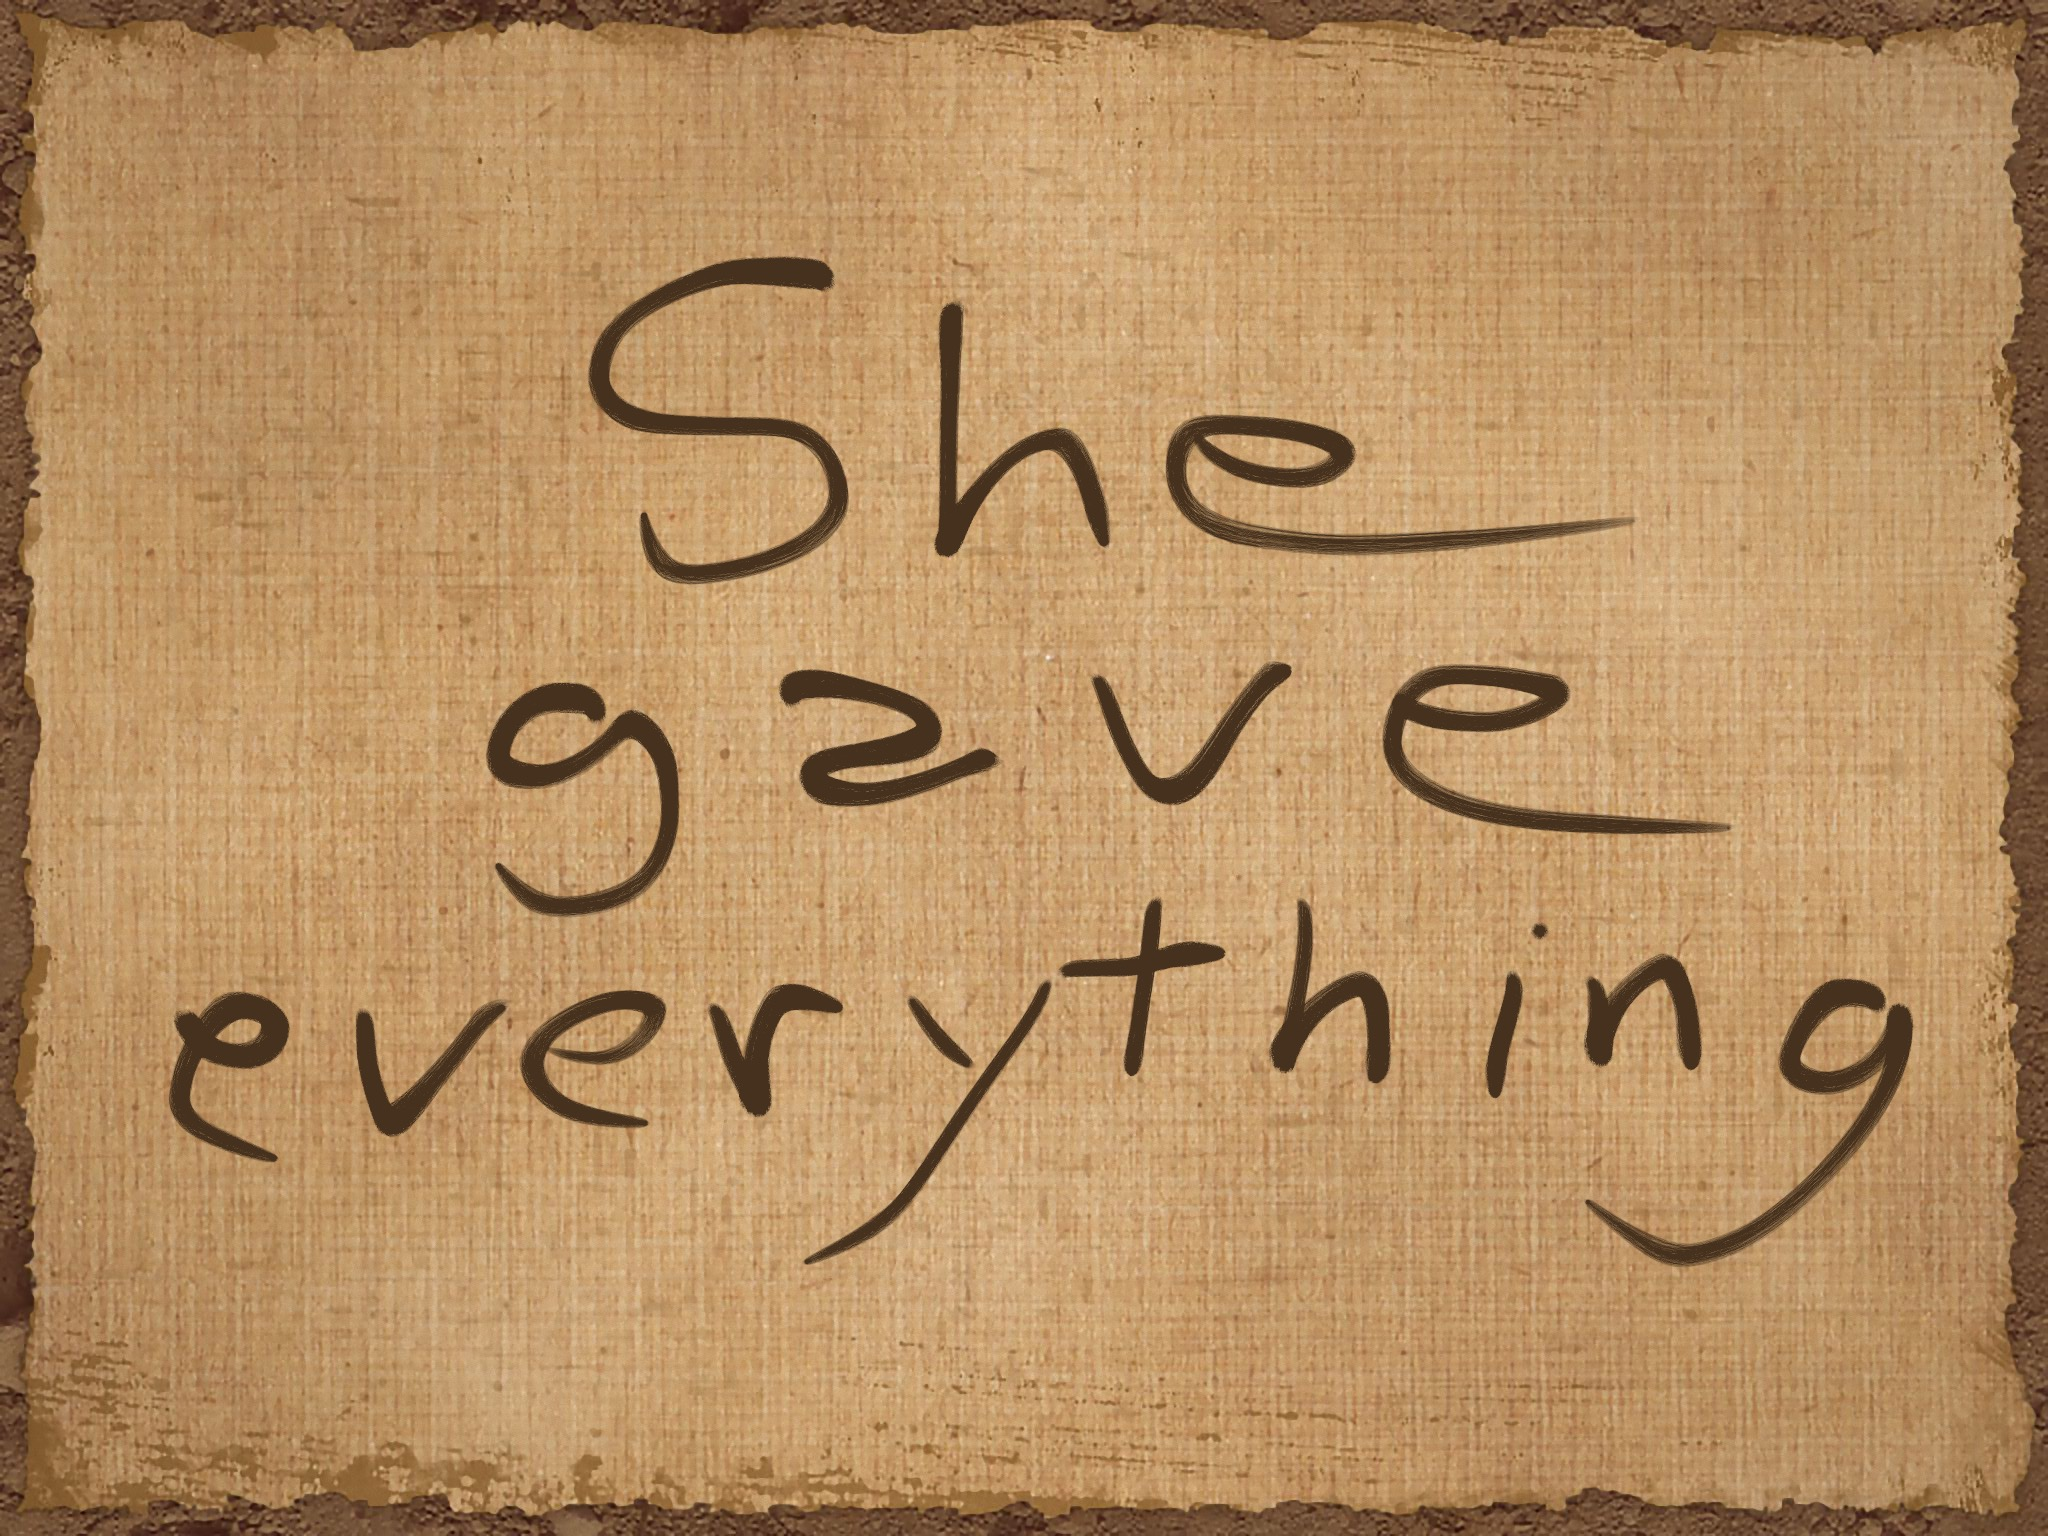 She
gave
everything